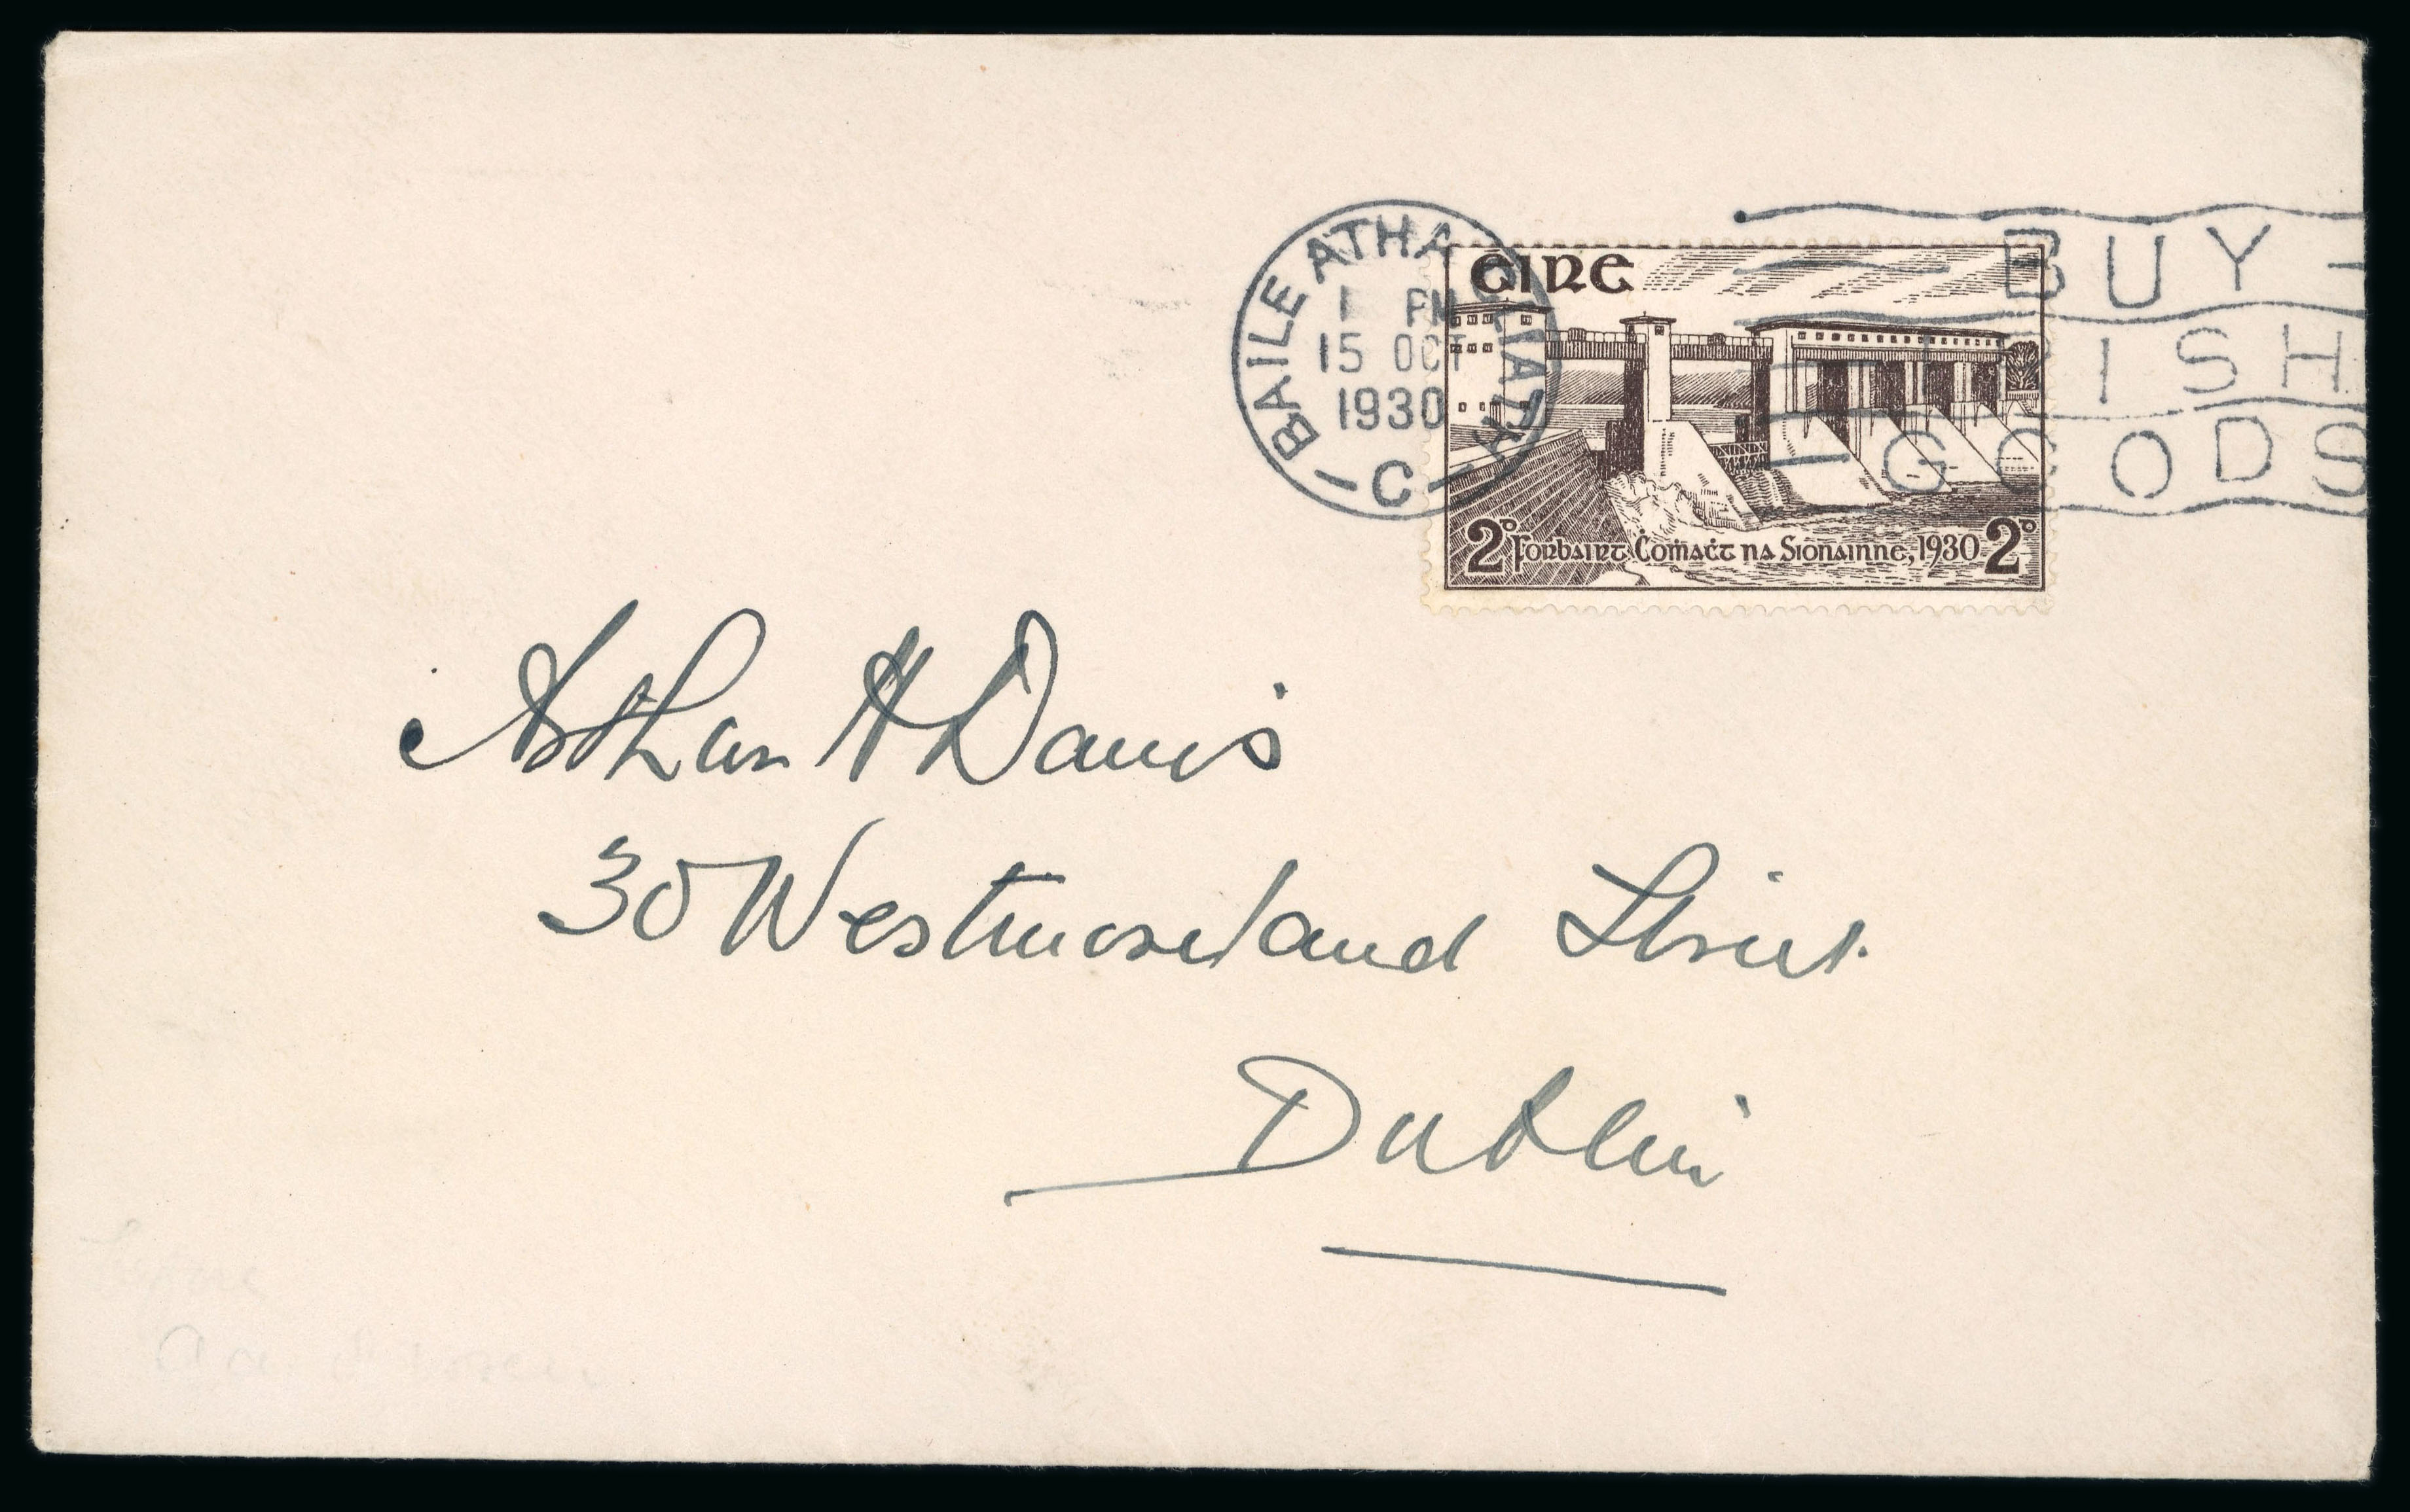 BAILE ATHA CLIATH
1 PM
15 OCT
1930
C
BUY
IRISH
GOODS
éire
2º Forbairt Ċoṁaċt na Sionainne, 1930 2º
Arthur H Davis
30 Westmoreland Street.
Dublin